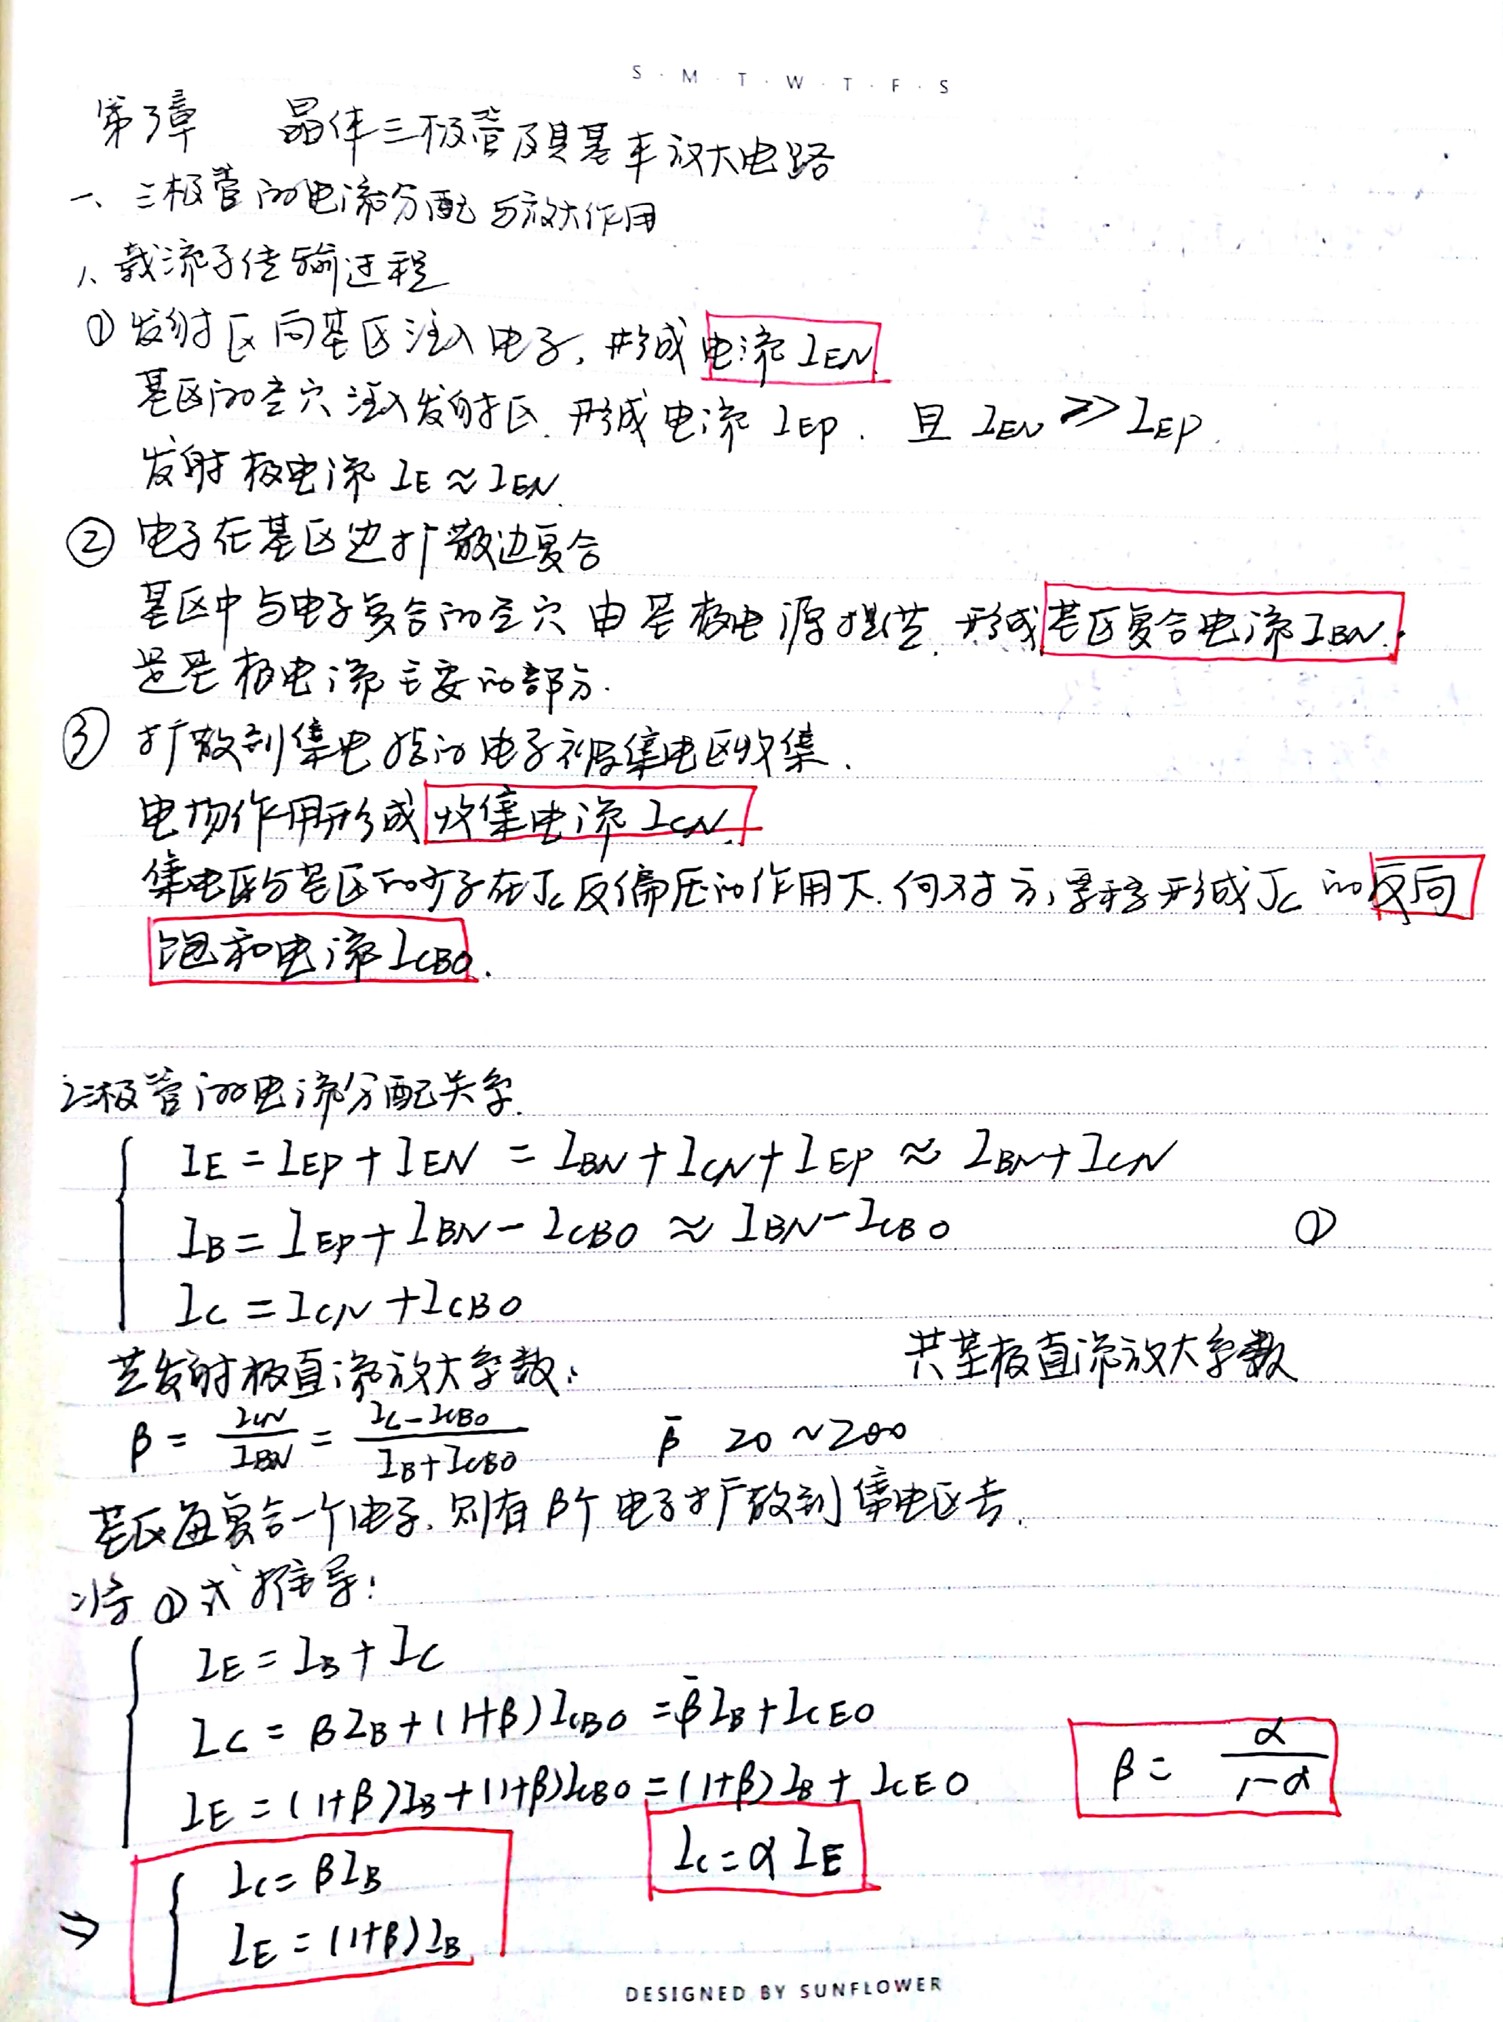 S · M · T · W · T · F · S
第3章 晶体三极管及其基本放大电路
一、三极管的电流分配与放大作用
1、载流子传输过程
① 发射区向基区注入电子,形成电流 IEN
基区的空穴注入发射区,形成电流 IEP. 且 IEN >> IEP.
发射极电流 IE ≈ IEN.
② 电子在基区边扩散边复合
基区中与电子复合的空穴由基极电源提供,形成基区复合电流 IBN.
是基极电流主要的部分.
③ 扩散到集电结的电子被集电区收集.
电场作用形成收集电流 ICN.
集电区与基区的少子在Jc反偏压的作用下.向对方漂移形成Jc的反向
饱和电流 ICBO.
2三极管的电流分配关系.
IE = IEP + IEN = IBN + ICN + IEP ≈ IBN + ICN
IB = IEP + IBN - ICBO ≈ IBN - ICBO ①
IC = ICN + ICBO
共发射极直流放大系数: 共基极直流放大系数
β = ICN/IBN = (IC - ICBO)/(IB + ICBO) β̄ 20 ~ 200
基区每复合一个电子,则有β个电子扩散到集电区去.
将①式推导:
IE = IB + IC
IC = βIB + (1+β)ICBO = β̄IB + ICEO
IE = (1+β)IB + (1+β)ICBO = (1+β)IB + ICEO β = α/(1-α)
IC = βIB IC = αIE
⇒ IE = (1+β)IB
DESIGNED BY SUNFLOWER